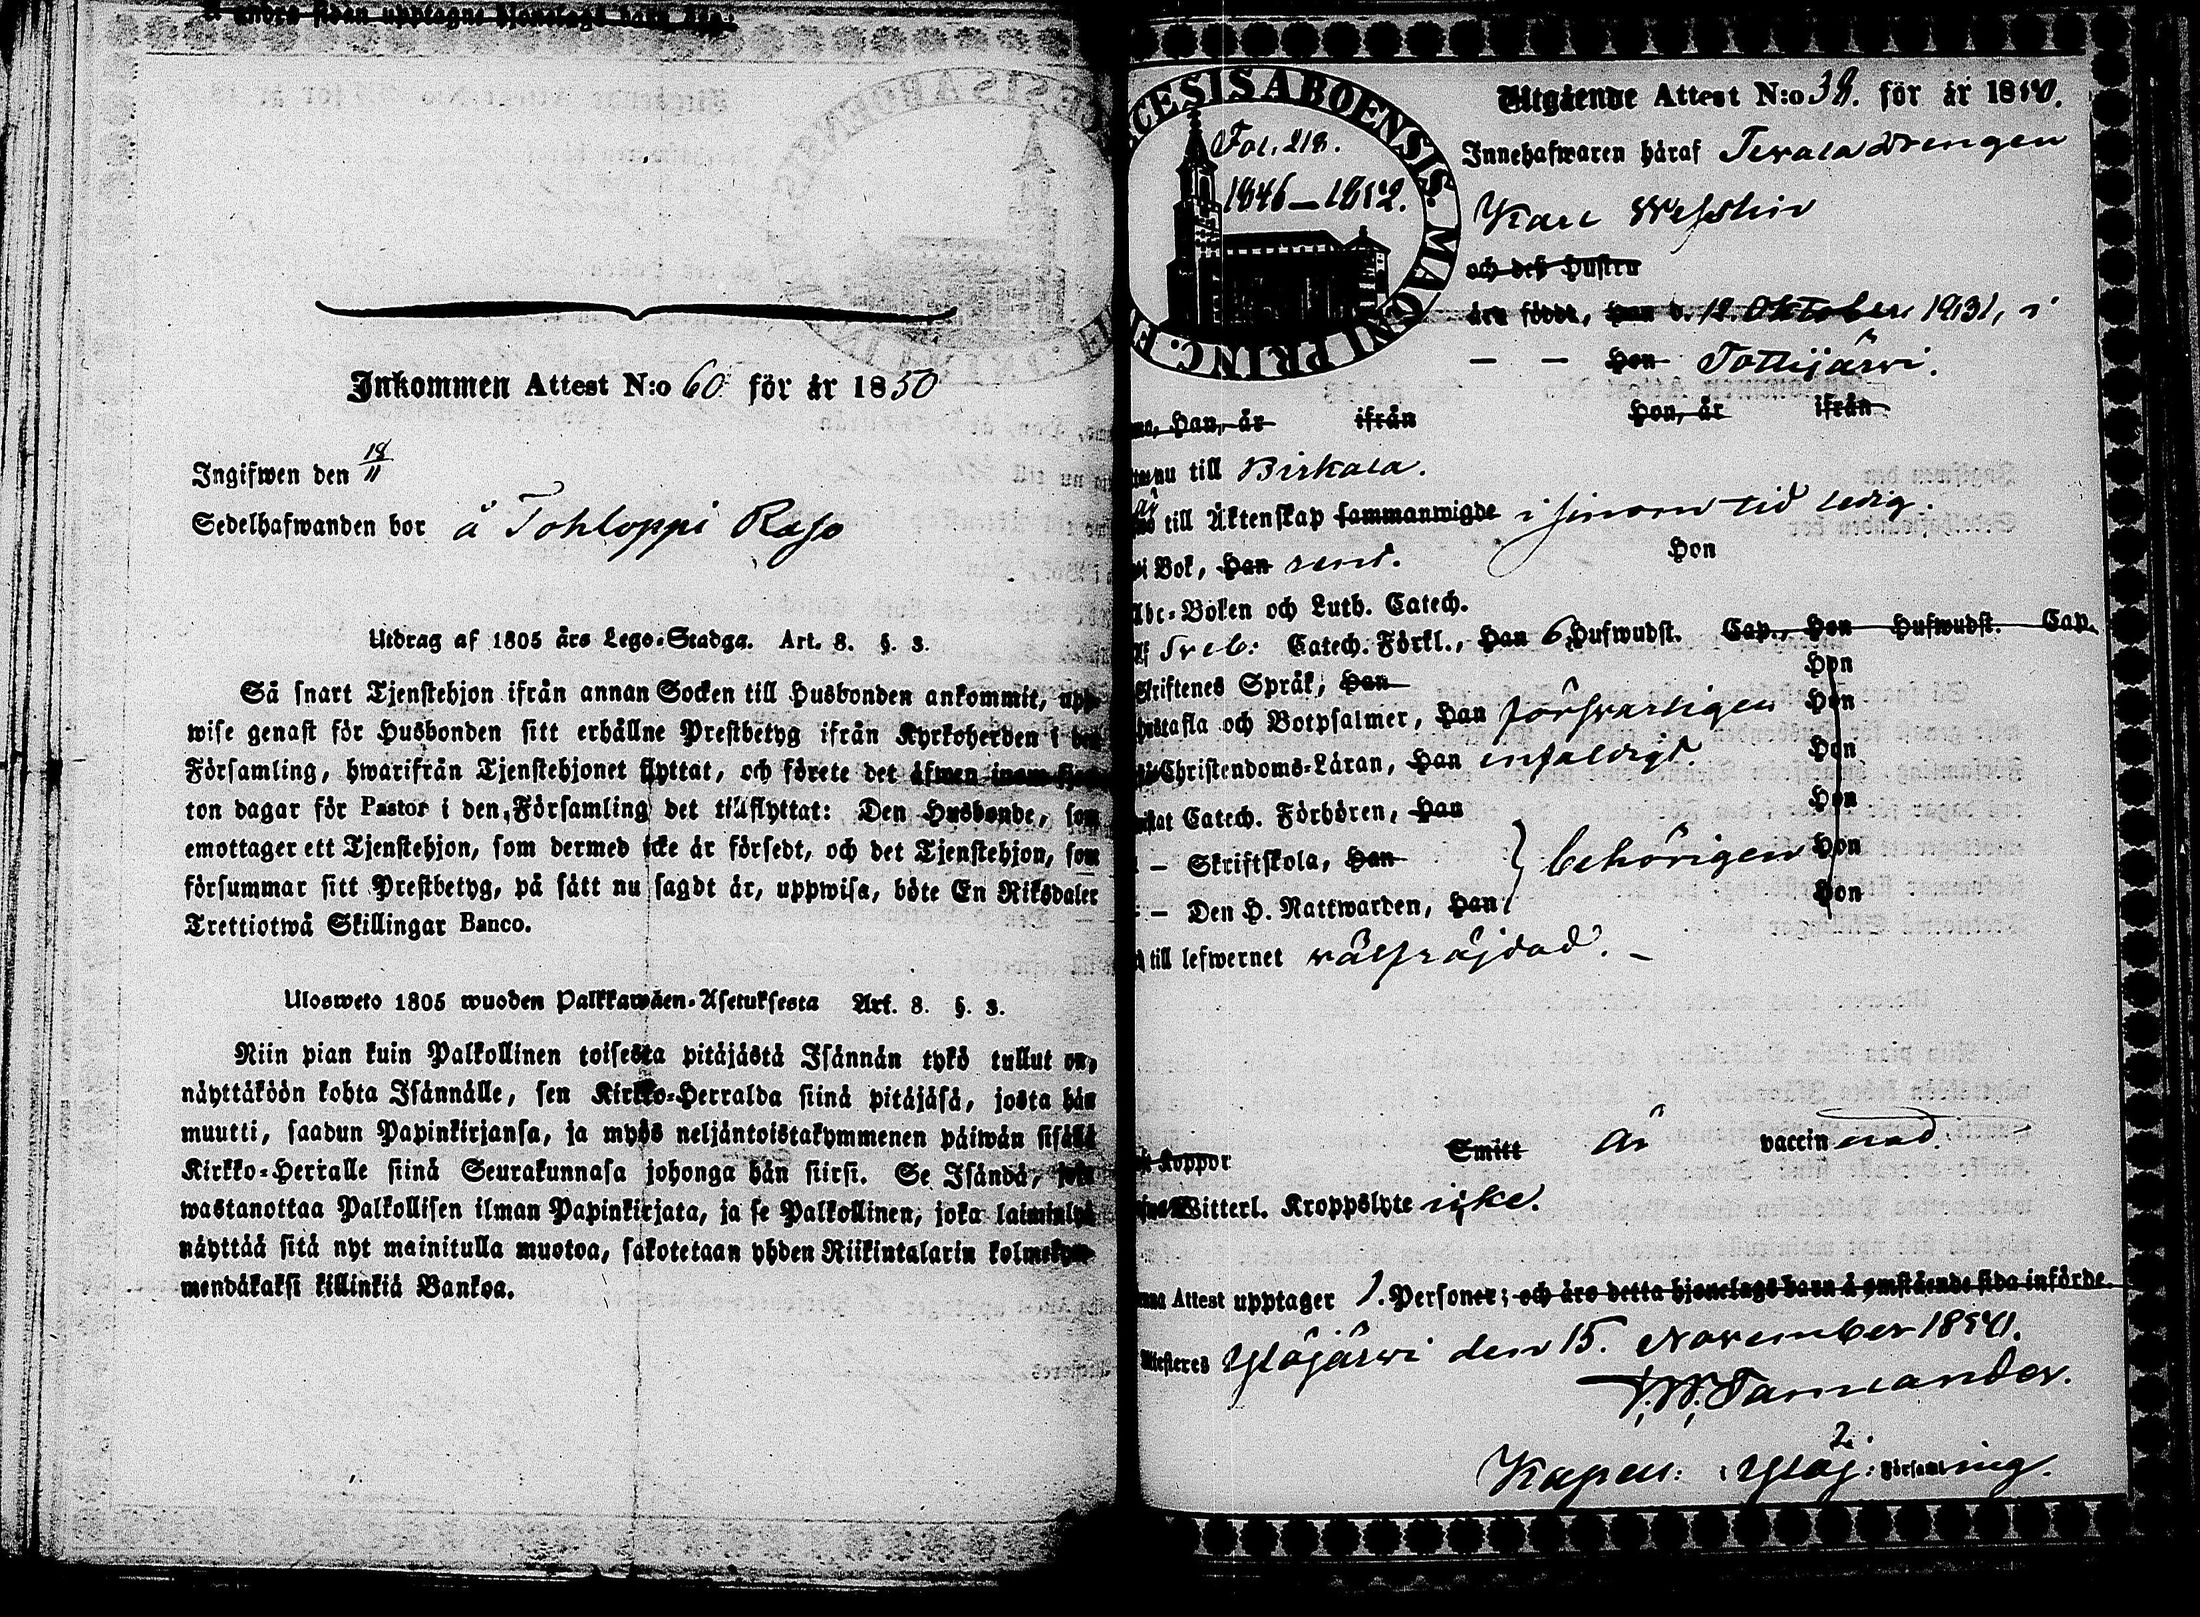 å andra sidan upptagne hjonelags barn äro:
Inkommen Attest N:o 60 för år 1850
Ingifwen den 18/11
Sedelhafwanden bor å Tohloppi Raso
Utdrag af 1805 års Lego-Stadga. Art. 8. §. 3.
Så snart Tjenstehjon ifrån annan Socken till Husbonden ankommit, upp-
wise genast för Husbonden sitt erhållne Prestbetyg ifrån Kyrkoherden i den
Församling, hwarifrån Tjenstehjonet flyttat, och förete det äfwen inom fjor-
ton dagar för Pastor i den Församling det tillflyttat: Den Husbonde, som
emottager ett Tjenstehjon, som dermed icke är försedt, och det Tjenstehjon, som
försummar sitt Prestbetyg, på sätt nu sagdt är, uppwisa, böte En Riksdaler
Trettiotwå Skillingar Banco.
Ulosweto 1805 wuoden Palkkawäen-Asetuksesta Art. 8. §. 3.
Niin pian kuin Palkollinen toisesta pitäjästä Isännän tykö tullut on,
näyttäköön kohta Isännälle, sen Kirkko-Herralda siinä pitäjäsä, josta hän
muutti, saadun Papinkirjansa, ja myös neljäntoistakymmenen päiwän sisällä
Kirkko-Herralle siinä Seurakunnasa johonga hän siirsi. Se Isändä, joka
wastanottaa Palkollisen ilman Papinkirjata, ja se Palkollinen, joka laiminlyö
näyttää sitä nyt mainitulla muotoa, sakotetaan yhden Riikintalarin kolmekym-
mendäkaksi killinkiä Bankoa.
CESIS ABOENSIS. MAGNI PRINC. F
Fol. 218.
1846–1852.
Utgående Attest N:o 38. för år 1850.
Innehafwaren häraf Terala drengen
Karl
och deß Hustru
äro födde, Han d. 12. Oktober 1831, i
— — Hon Tottijärvi.
Han, år ifrån Hon, år ifrån
nu till Birkala.
till Äktenskap sammanwigde i sinom tid ledig.
i Bok, Han rent. Hon
Abc-Boken och Luth. Catech.
Sveb: Catech. Förkl., Han 6 Hufwudst. Cap., Hon Hufwudst. Cap.
Skriftenes Språk, Han Hon
Hustafla och Botpsalmer, Han försvarligen Hon
Christendoms-Läran, Han enfaldigt. Hon
Catech. Förhören, Han Hon
— Skriftskola, Han behörigen Hon
— Den H. Nattwarden, Han Hon
till lefwernet välfräjdad. –
Koppor Smitt är vaccinerad.
Witterl. Kroppslyte icke.
Attest upptager 1. Personer; och äro detta hjonelags barn å omstående sida införde
Attesteres Ylöjärvi den 15. November 1850.
Kapell: i Ylöj: Församling.